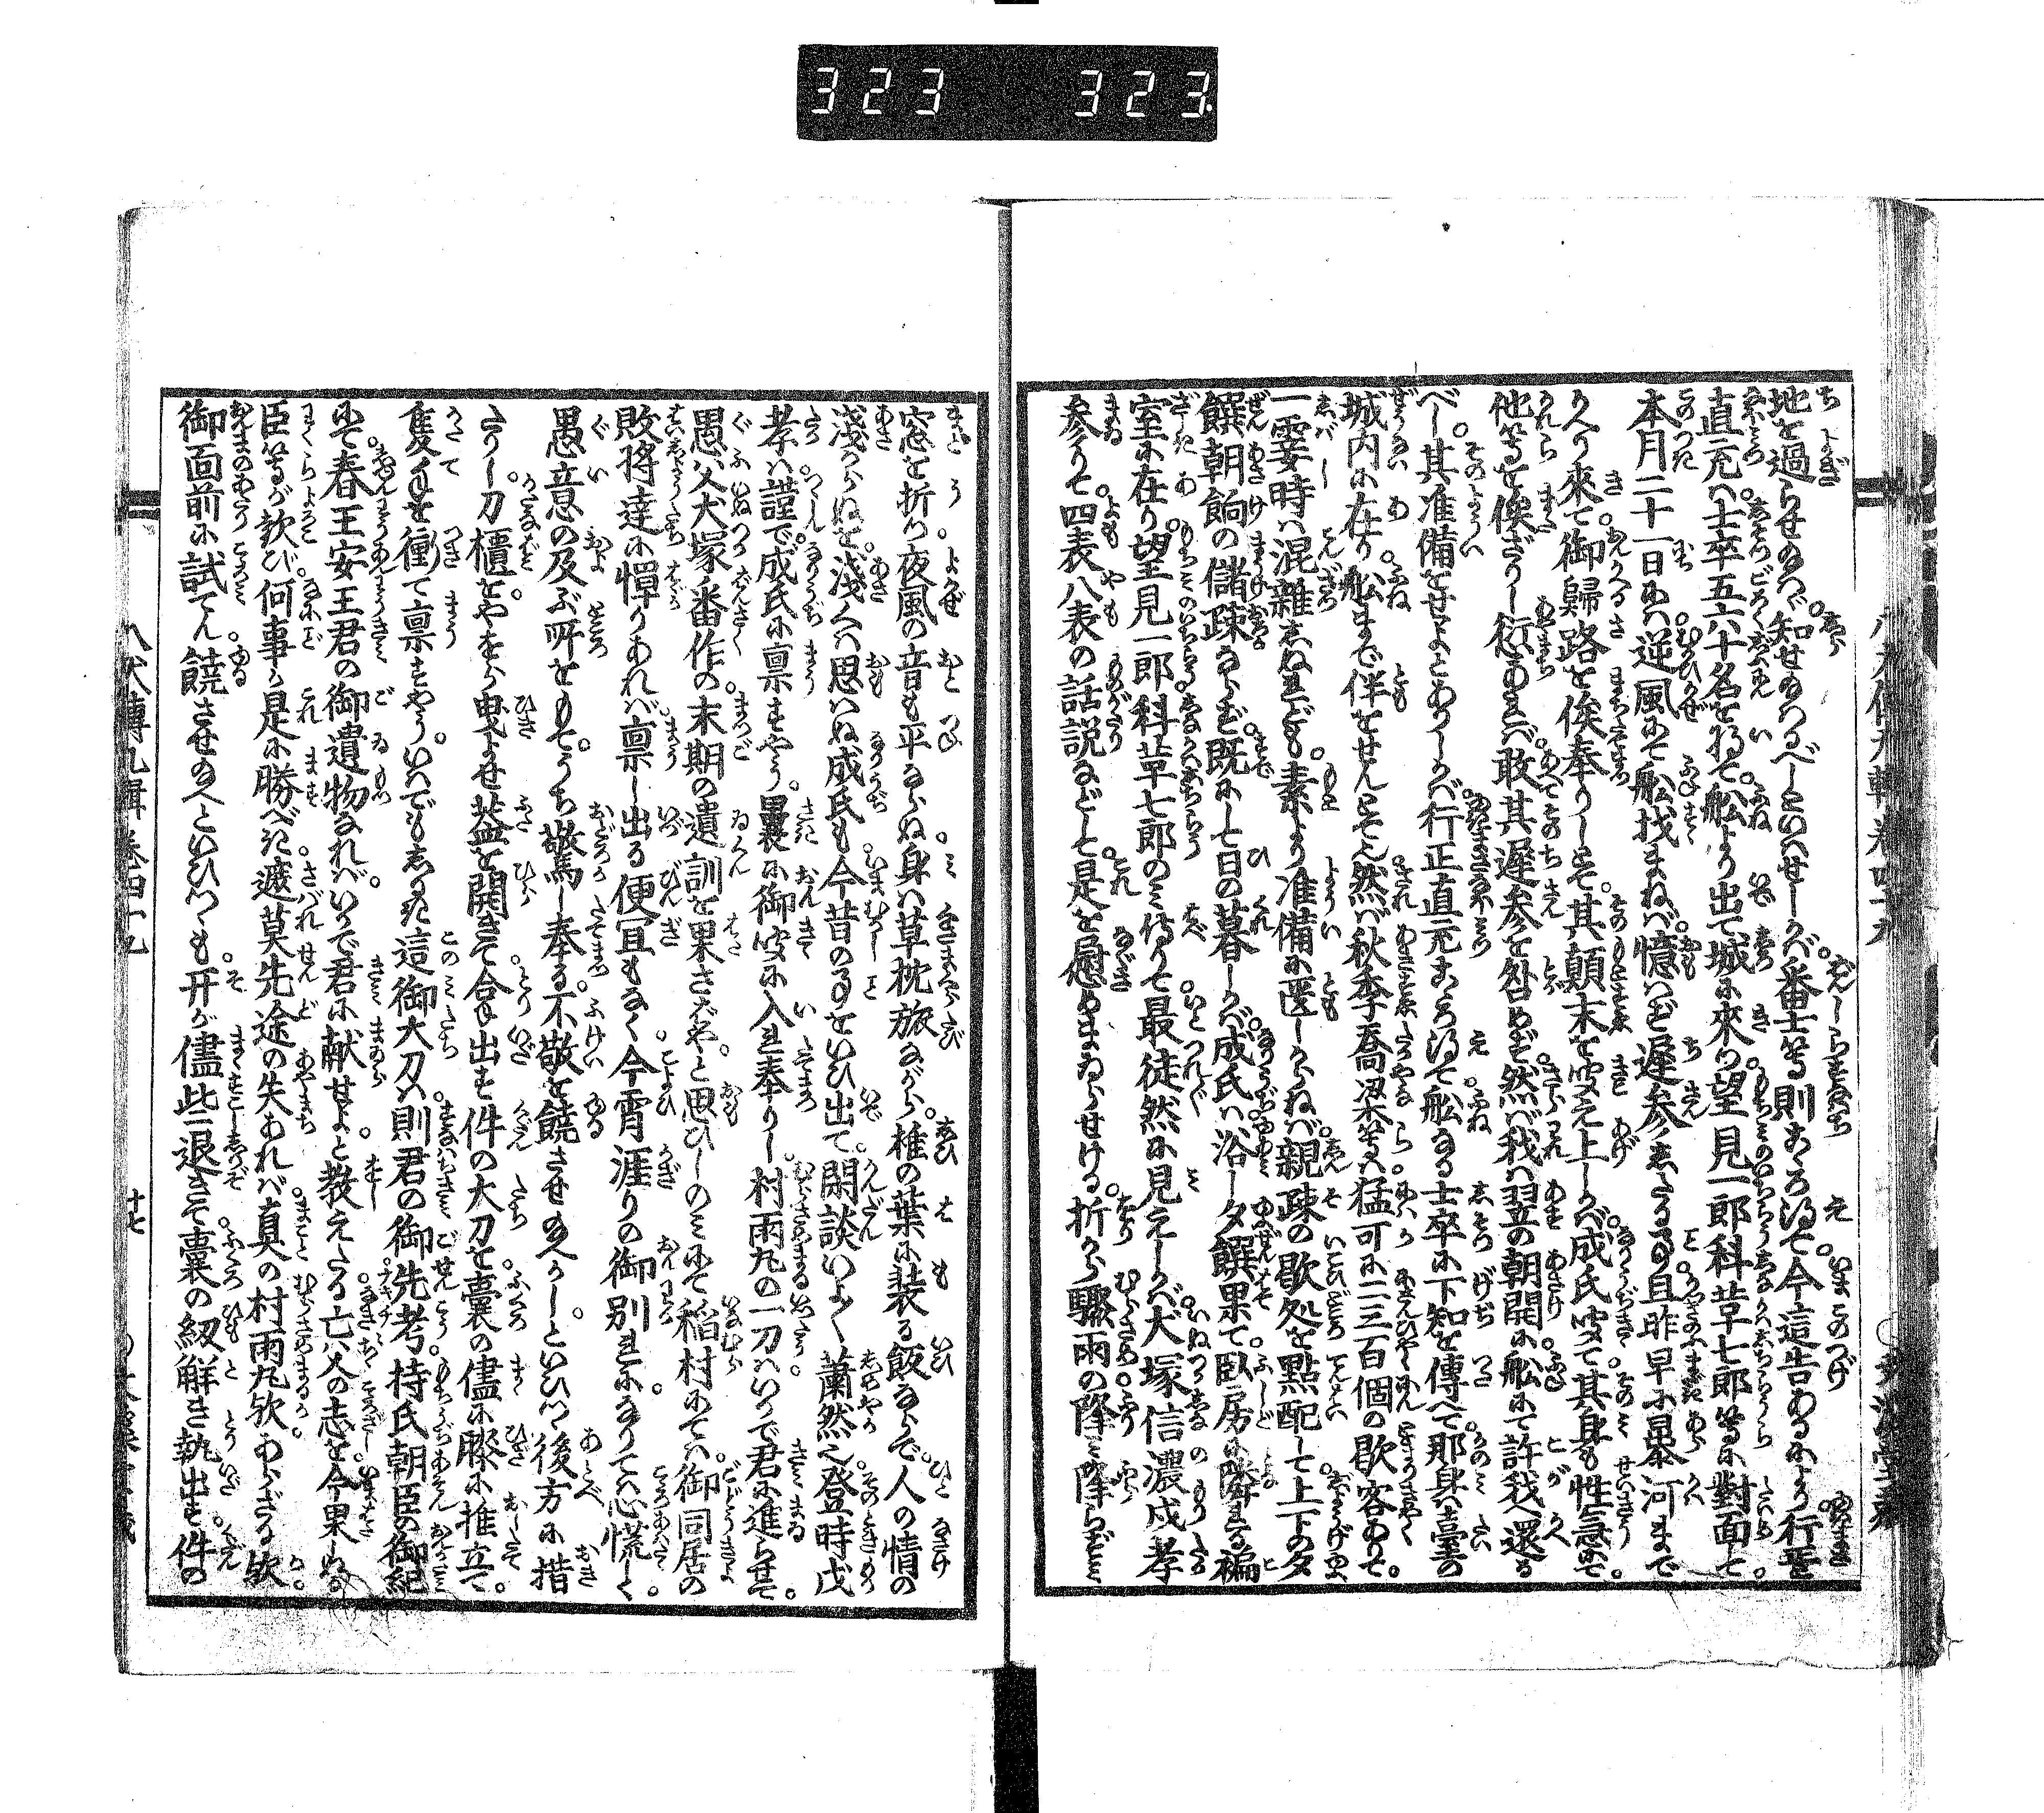 323 323
地を過らせ給へば知せ給ふべしといはせしかば番士等則こゝろ得て今這告あるにより行正
直元は士卒五六十名を将て船より出て城に來つ望見一郎科草七郎等に對面して
本月二十一日には逆風にて船找まねば憶はず遲参したる事且昨早に暴河まで
かへり來て御歸路を俟奉りしとぞ其顛末を聞え上しかば成氏聞て其身も性急にて
他等を俟ざりし愆あれば敢其遲参を咎めず然ば我は翌の朝開に船にて許我へ還る
べし其准備をせよとありしかば行正直元こゝろ得て船なる士卒に下知を傳へて那身は臺の
城内に在り船まで伴をせんとぞ然ば秋季喬梁等は猛可に二三百個の歇客ありて
一霎時は混雜しぬれども素より准備に匱しからねば親疎の歇処を點配して上下の夕
饌朝餉の儲疎ならず既にして日の暮しかば成氏は浴し夕饌果て臥房に隣れる褊
室に在り望見一郎科草七郎のみ侍りて最徒然に見えしかば犬塚信濃戍孝
参りて四表八表の話説などして是を慰めまゐらせける折から驟雨の降み降らずみ
窓を折つ夜風の音も平ならぬ身は草枕旅ながら椎の葉に装る飯ならで人の情の
淺からぬを淺くは思はぬ成氏も今昔の事をいひ出て閑談いよ〳〵蘭然也登時戍
孝は謹で成氏に稟すやう曩に御聞に入れ奉りし村雨丸の一刀はいかで君に進らせて
愚父犬塚番作の末期の遺訓を果さばやと思ひしのみにて稲村にては御同居の
敗將達に憚りあれば稟し出る便宜もなく今宵涯りの御別れになりては心慌しく
愚意の及ぶ所をもてうち驚し奉る不敬を饒させ給へかしといひつゝ後方に措
たりし刀櫃をやをら曳よせ葢を開きて合に出す件の大刀を嚢の儘に膝に推立て
隻手を衝て稟すやういはでもしるき這御大刀は則君の御先考持氏朝臣の御紀
にて春王安王君の御遺物なればいかで君に献せよと教えたる亡父の志を今果しぬる
臣等が歓び何事か是に勝べき遮莫先途の失あれば眞の村雨丸欤あらざる欤
御面前に試てん饒させ給へといひつゝも开が儘些退きて嚢の紐解き執出す件の
八犬傳九輯巻四十九
十七